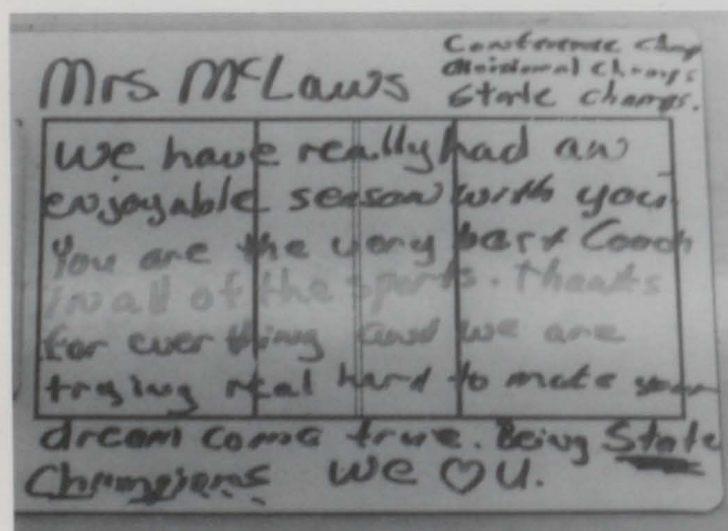 Mrs McLaws
Conference Champ
divisional Champs
State champs.
We have really had an
enjoyable season with you
You are the very best Coach
in all of the sports. Thanks
for everthing and we are
trying real hard to make your
dream come true. Being State
Champions We ♡ U.